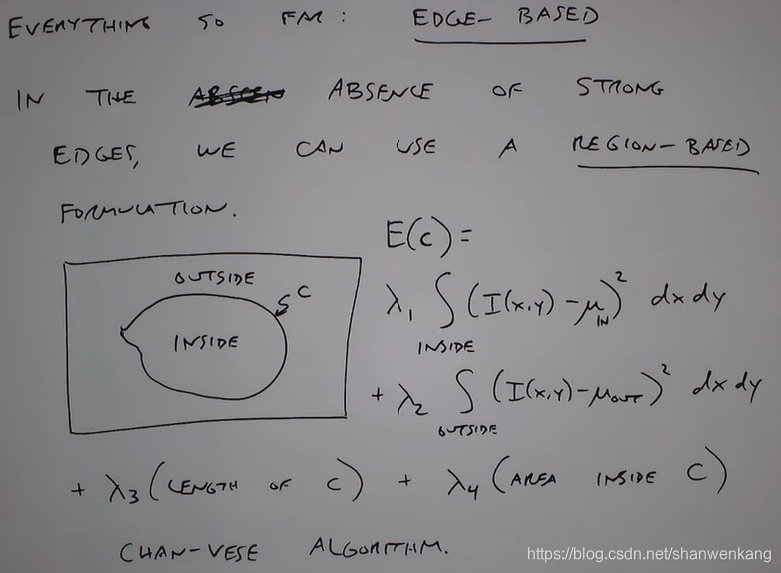 EVERYTHING SO FAR: EDGE-BASED
IN THE ABSENCE OF STRONG
EDGES, WE CAN USE A REGION-BASED
FORMULATION.
E(C) =
OUTSIDE
C
INSIDE
λ₁ ∫ (I(x,y) - μ_IN)² dx dy
INSIDE
+ λ₂ ∫ (I(x,y) - μ_OUT)² dx dy
OUTSIDE
+ λ₃ (LENGTH OF C) + λ₄ (AREA INSIDE C)
CHAN-VESE ALGORITHM.
https://blog.csdn.net/shanwenkang